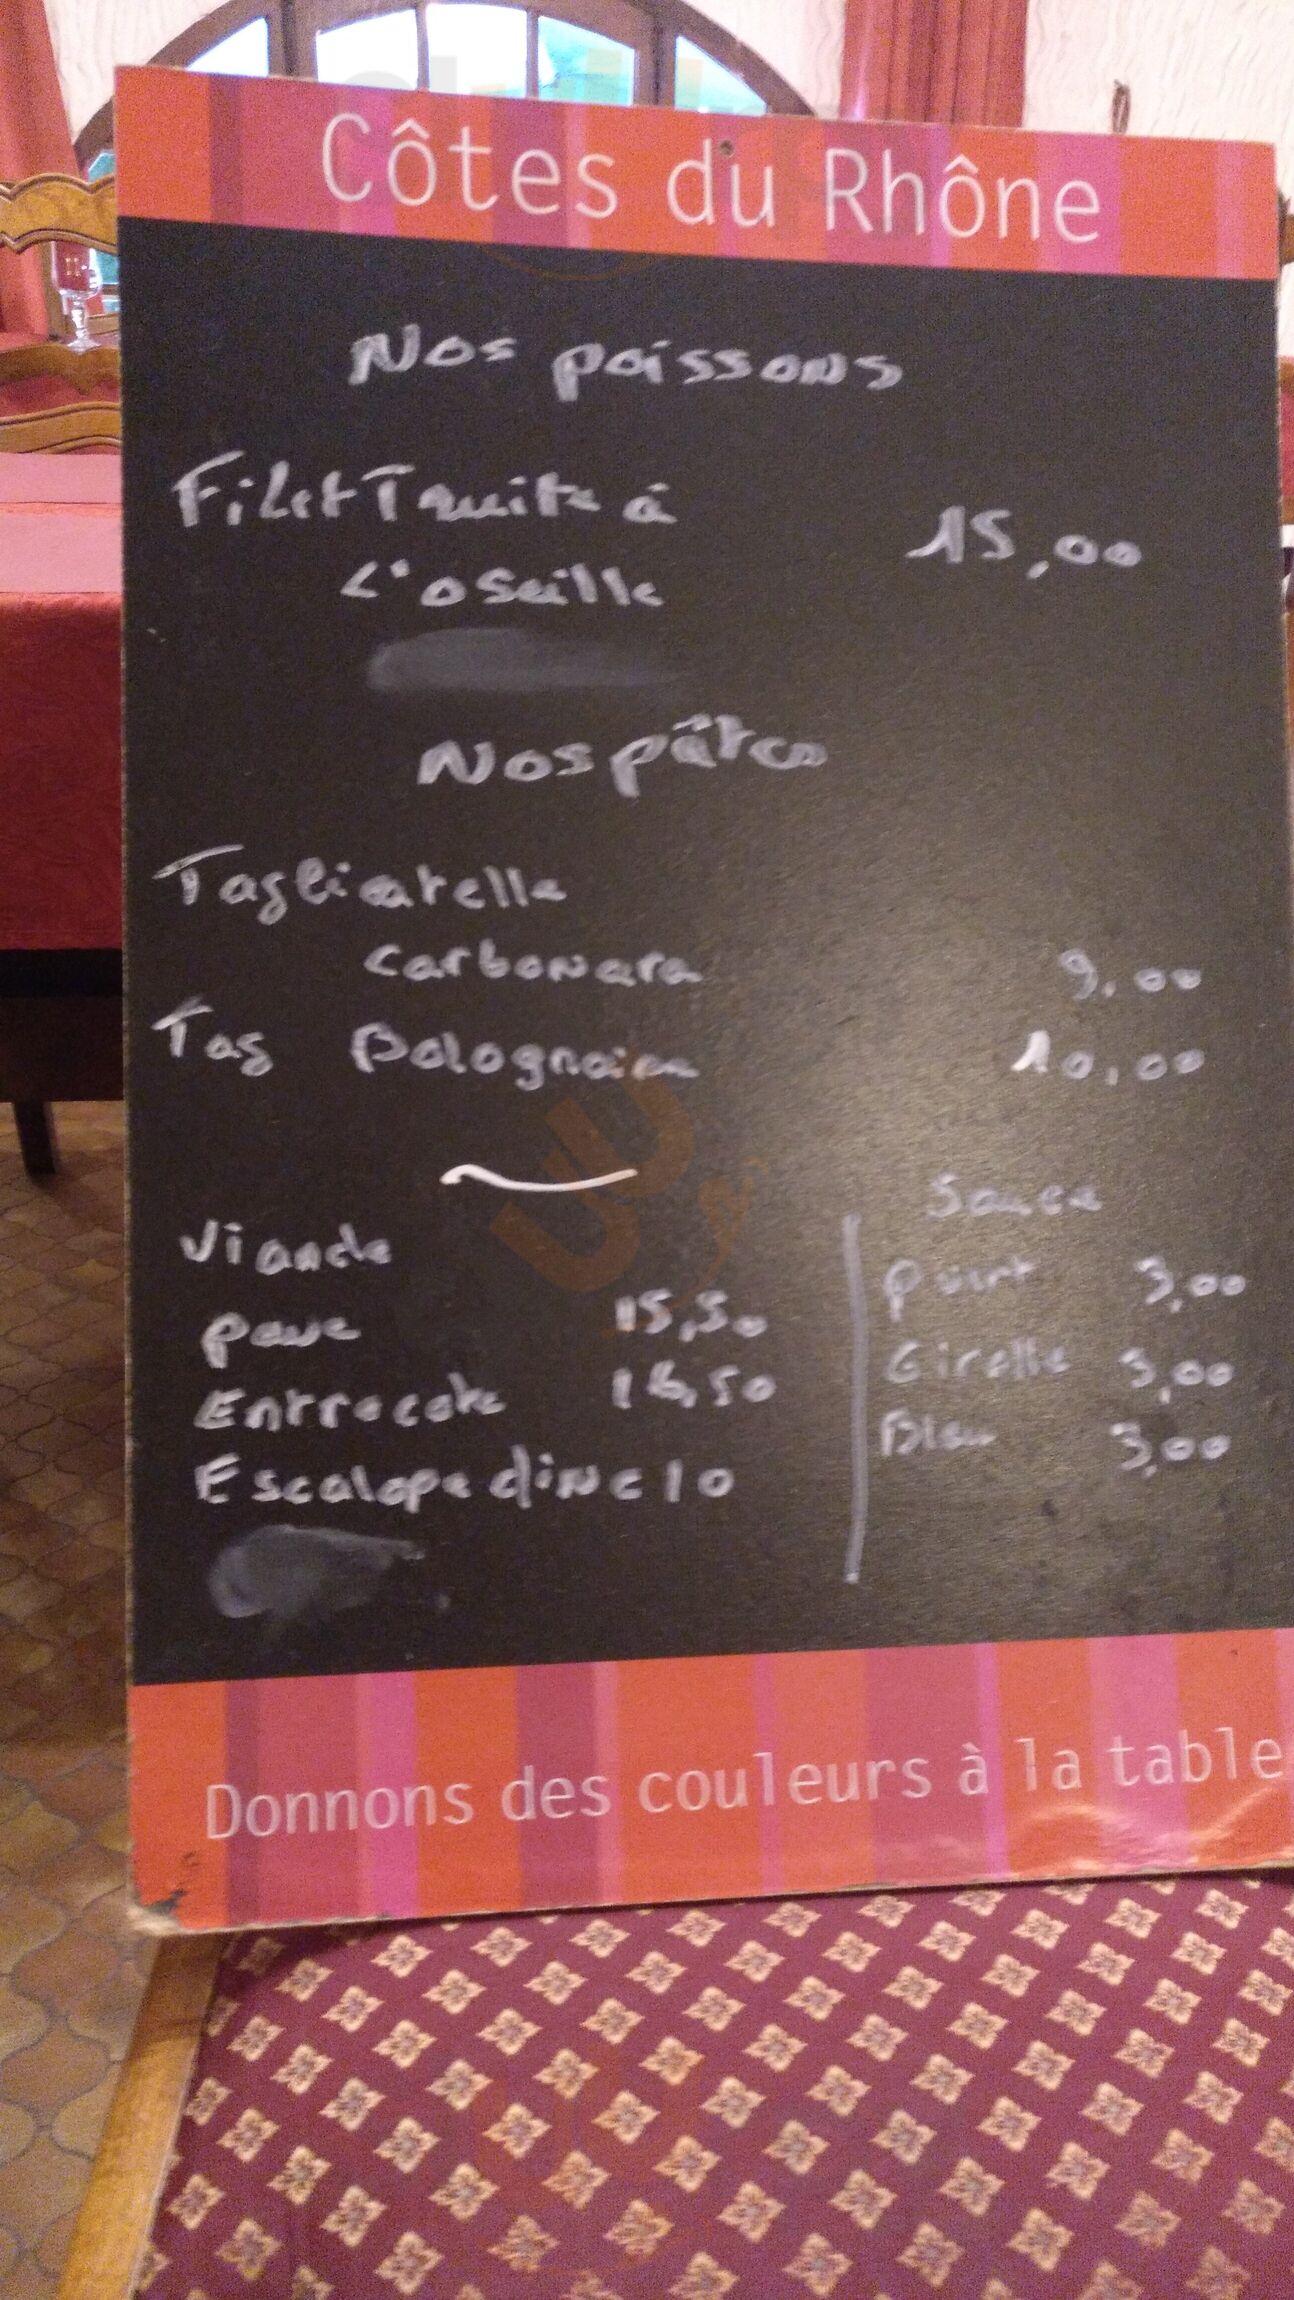 Côtes du Rhône
Nos poissons
Filet Truite à 15,00
L'oseille
Nos pâtes
Tagliatelle
carbonara 9,00
Tag Bolognaise 10,00
Viande
pave 15,50
Entrecote 16,50
Escalope dinde 10
Sauce
3,00
Girolle 3,00
Bleu 3,00
Donnons des couleurs à la table